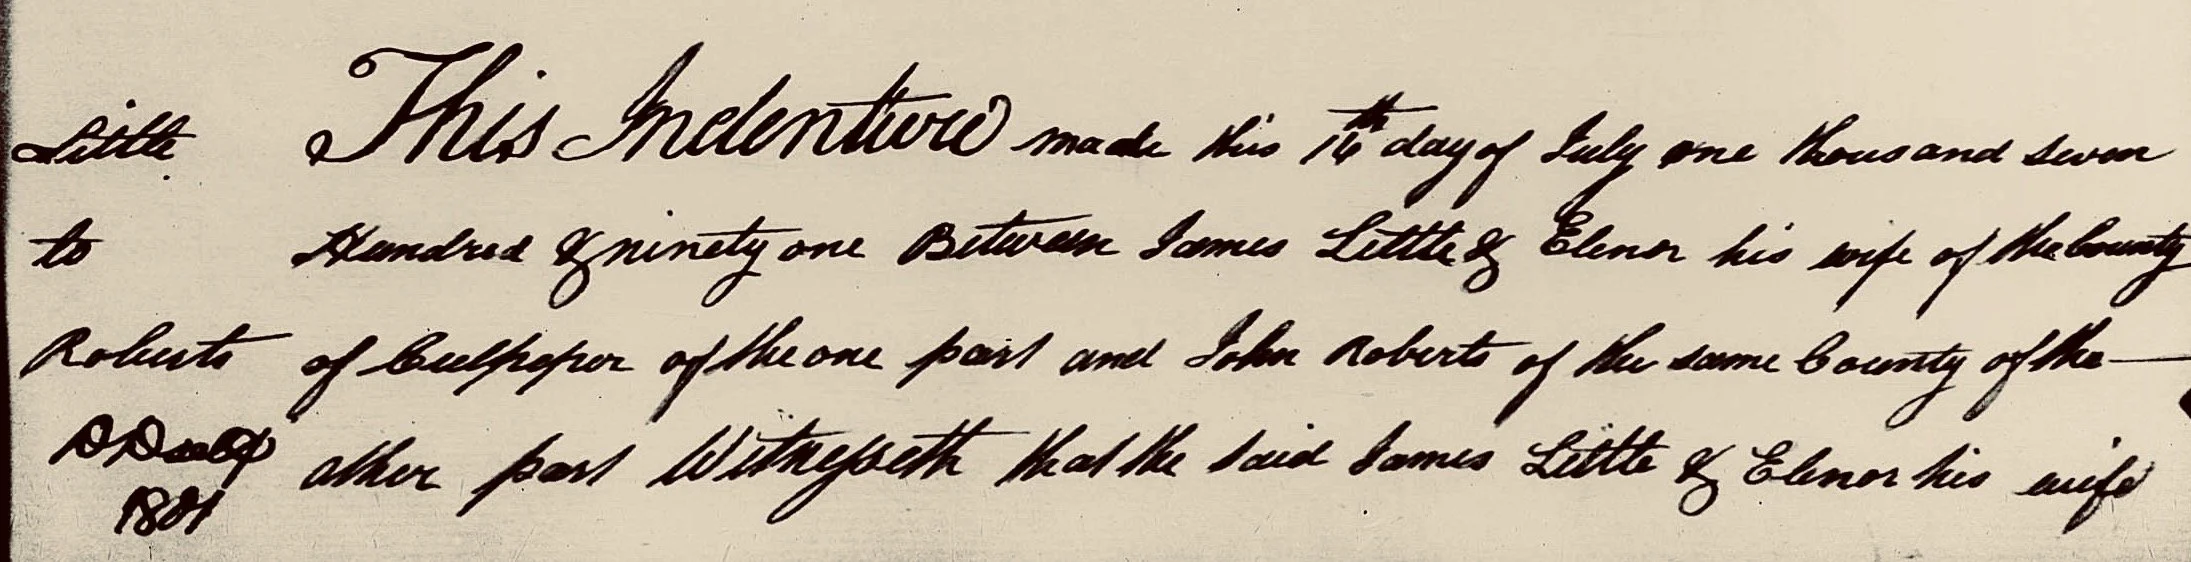 Little
to
Roberts
DD
1801
This Indenture made this 16th day of July one thousand seven
Hundred & ninety one Between James Little & Elenor his wife of the County
of Culpeper of the one part and John Roberts of the same County of the —
other part Witnesseth that the said James Little & Elenor his wife